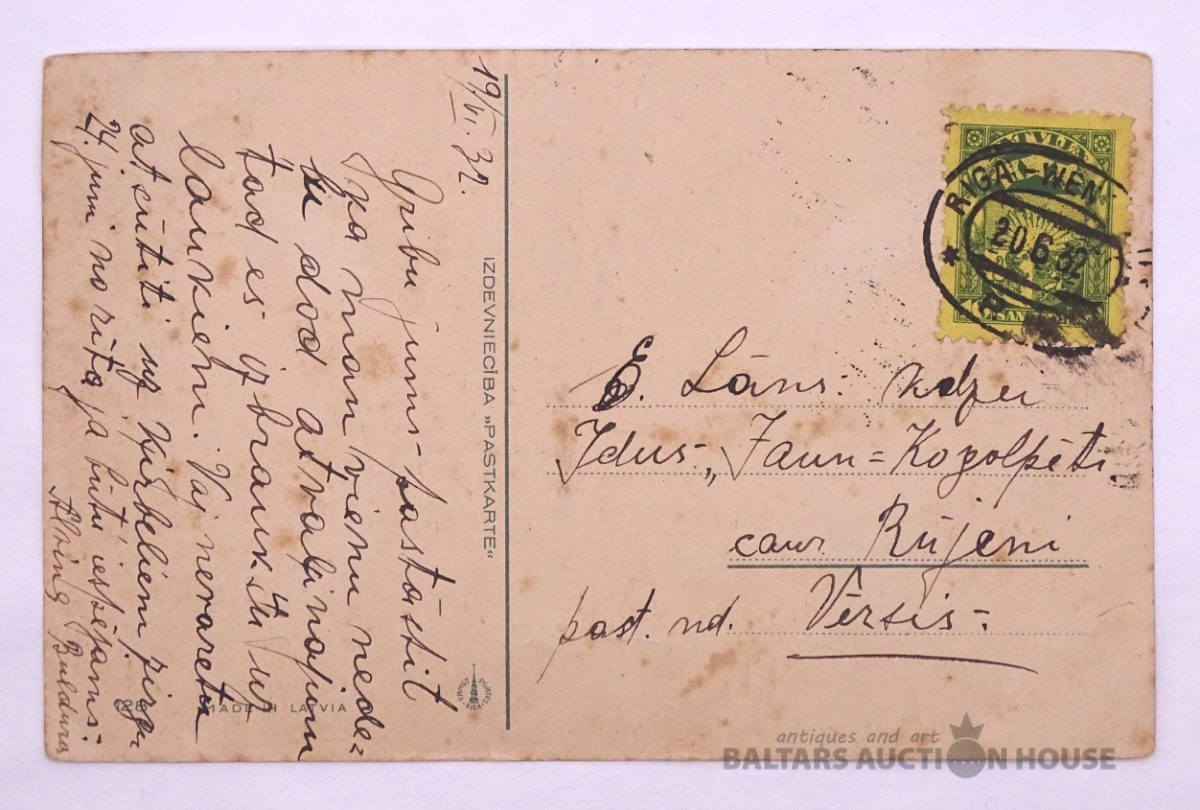 19/VI. 32.
Gribu jums pastāstit
ka man vienu nede=
ļu dod atvaļinajumu
tad es izbraukšu uz
laukiem. Vaj nevaretu
atsūtiti uz Ķirbeļiem zirgu
24. juni no rīta ja būtu iespējams.
Buldura
IZDEVNIECĪBA »PASTKARTE«
MADE IN LATVIA
LATVIJA
RIGA - WEN
20.6.32
SANT
E. Lāns. kdzei
Idus „Jaun=Kogolpēti
caur Rūjeni
past. nd. Vērsis.
antiques and art
BALTARS AUCTION HOUSE